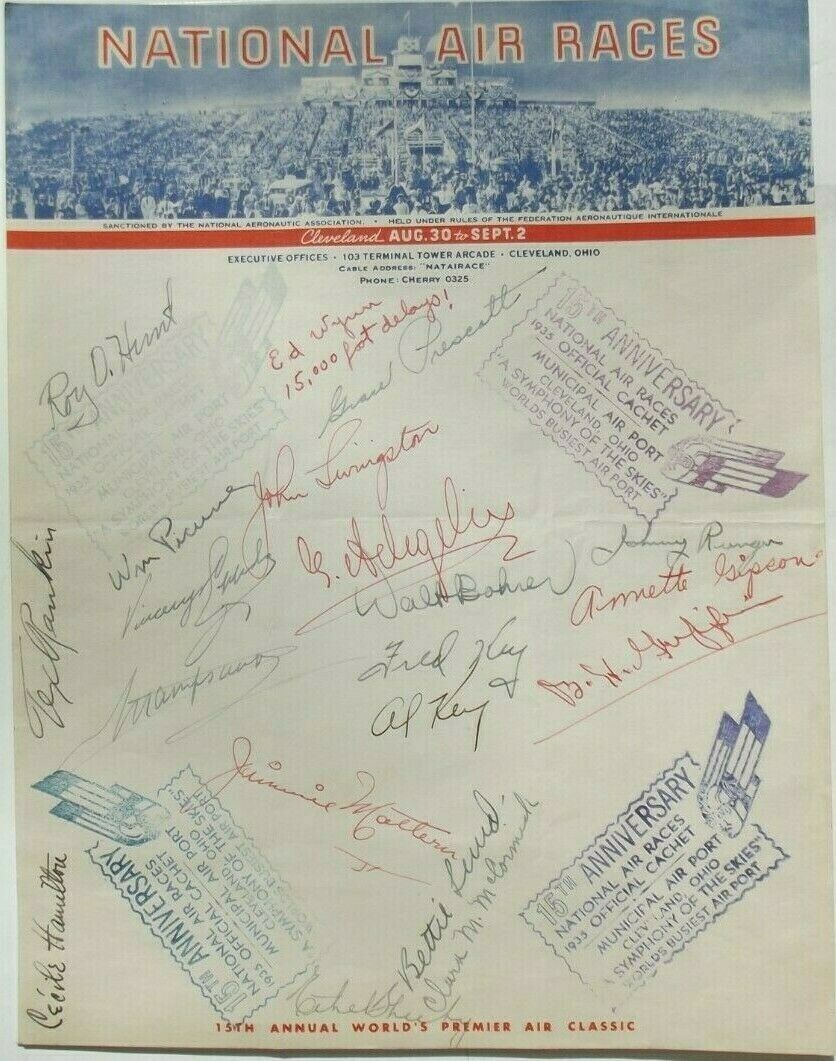 NATIONAL AIR RACES
SANCTIONED BY THE NATIONAL AERONAUTIC ASSOCIATION. • HELD UNDER RULES OF THE FEDERATION AERONAUTIQUE INTERNATIONALE
Cleveland AUG. 30 to SEPT. 2
EXECUTIVE OFFICES • 103 TERMINAL TOWER ARCADE • CLEVELAND, OHIO
CABLE ADDRESS: "NATAIRACE"
PHONE: CHERRY 0325
Roy O. Hunt
Ed Wynn
15,000 foot delays!
Grace Prescott
15TH ANNIVERSARY
NATIONAL AIR RACES
1935 OFFICIAL CACHET
MUNICIPAL AIR PORT
CLEVELAND, OHIO
"A SYMPHONY OF THE SKIES"
WORLDS BUSIEST AIR PORT
15TH ANNIVERSARY
NATIONAL AIR RACES
1935 OFFICIAL CACHET
MUNICIPAL AIR PORT
CLEVELAND, OHIO
"A SYMPHONY OF THE SKIES"
WORLDS BUSIEST AIR PORT
John Livingston
Wm
Vincent
Tex Rankin
Walt Bohrer
Johnny
Annette Gipson
Fred Key
&
Al Key
B. H. Griffin
Jimmie Mattern
15TH ANNIVERSARY
NATIONAL AIR RACES
1935 OFFICIAL CACHET
MUNICIPAL AIR PORT
CLEVELAND, OHIO
"A SYMPHONY OF THE SKIES"
WORLDS BUSIEST AIR PORT
15TH ANNIVERSARY
NATIONAL AIR RACES
1935 OFFICIAL CACHET
MUNICIPAL AIR PORT
CLEVELAND, OHIO
"A SYMPHONY OF THE SKIES"
WORLDS BUSIEST AIR PORT
Bettie Lund
Clara M. McCormick
Cecile Hamilton
15TH ANNUAL WORLD'S PREMIER AIR CLASSIC